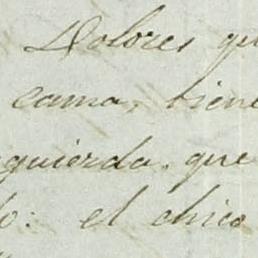 Dolores qu
cama, tiene
quierda, que
lo: el chico